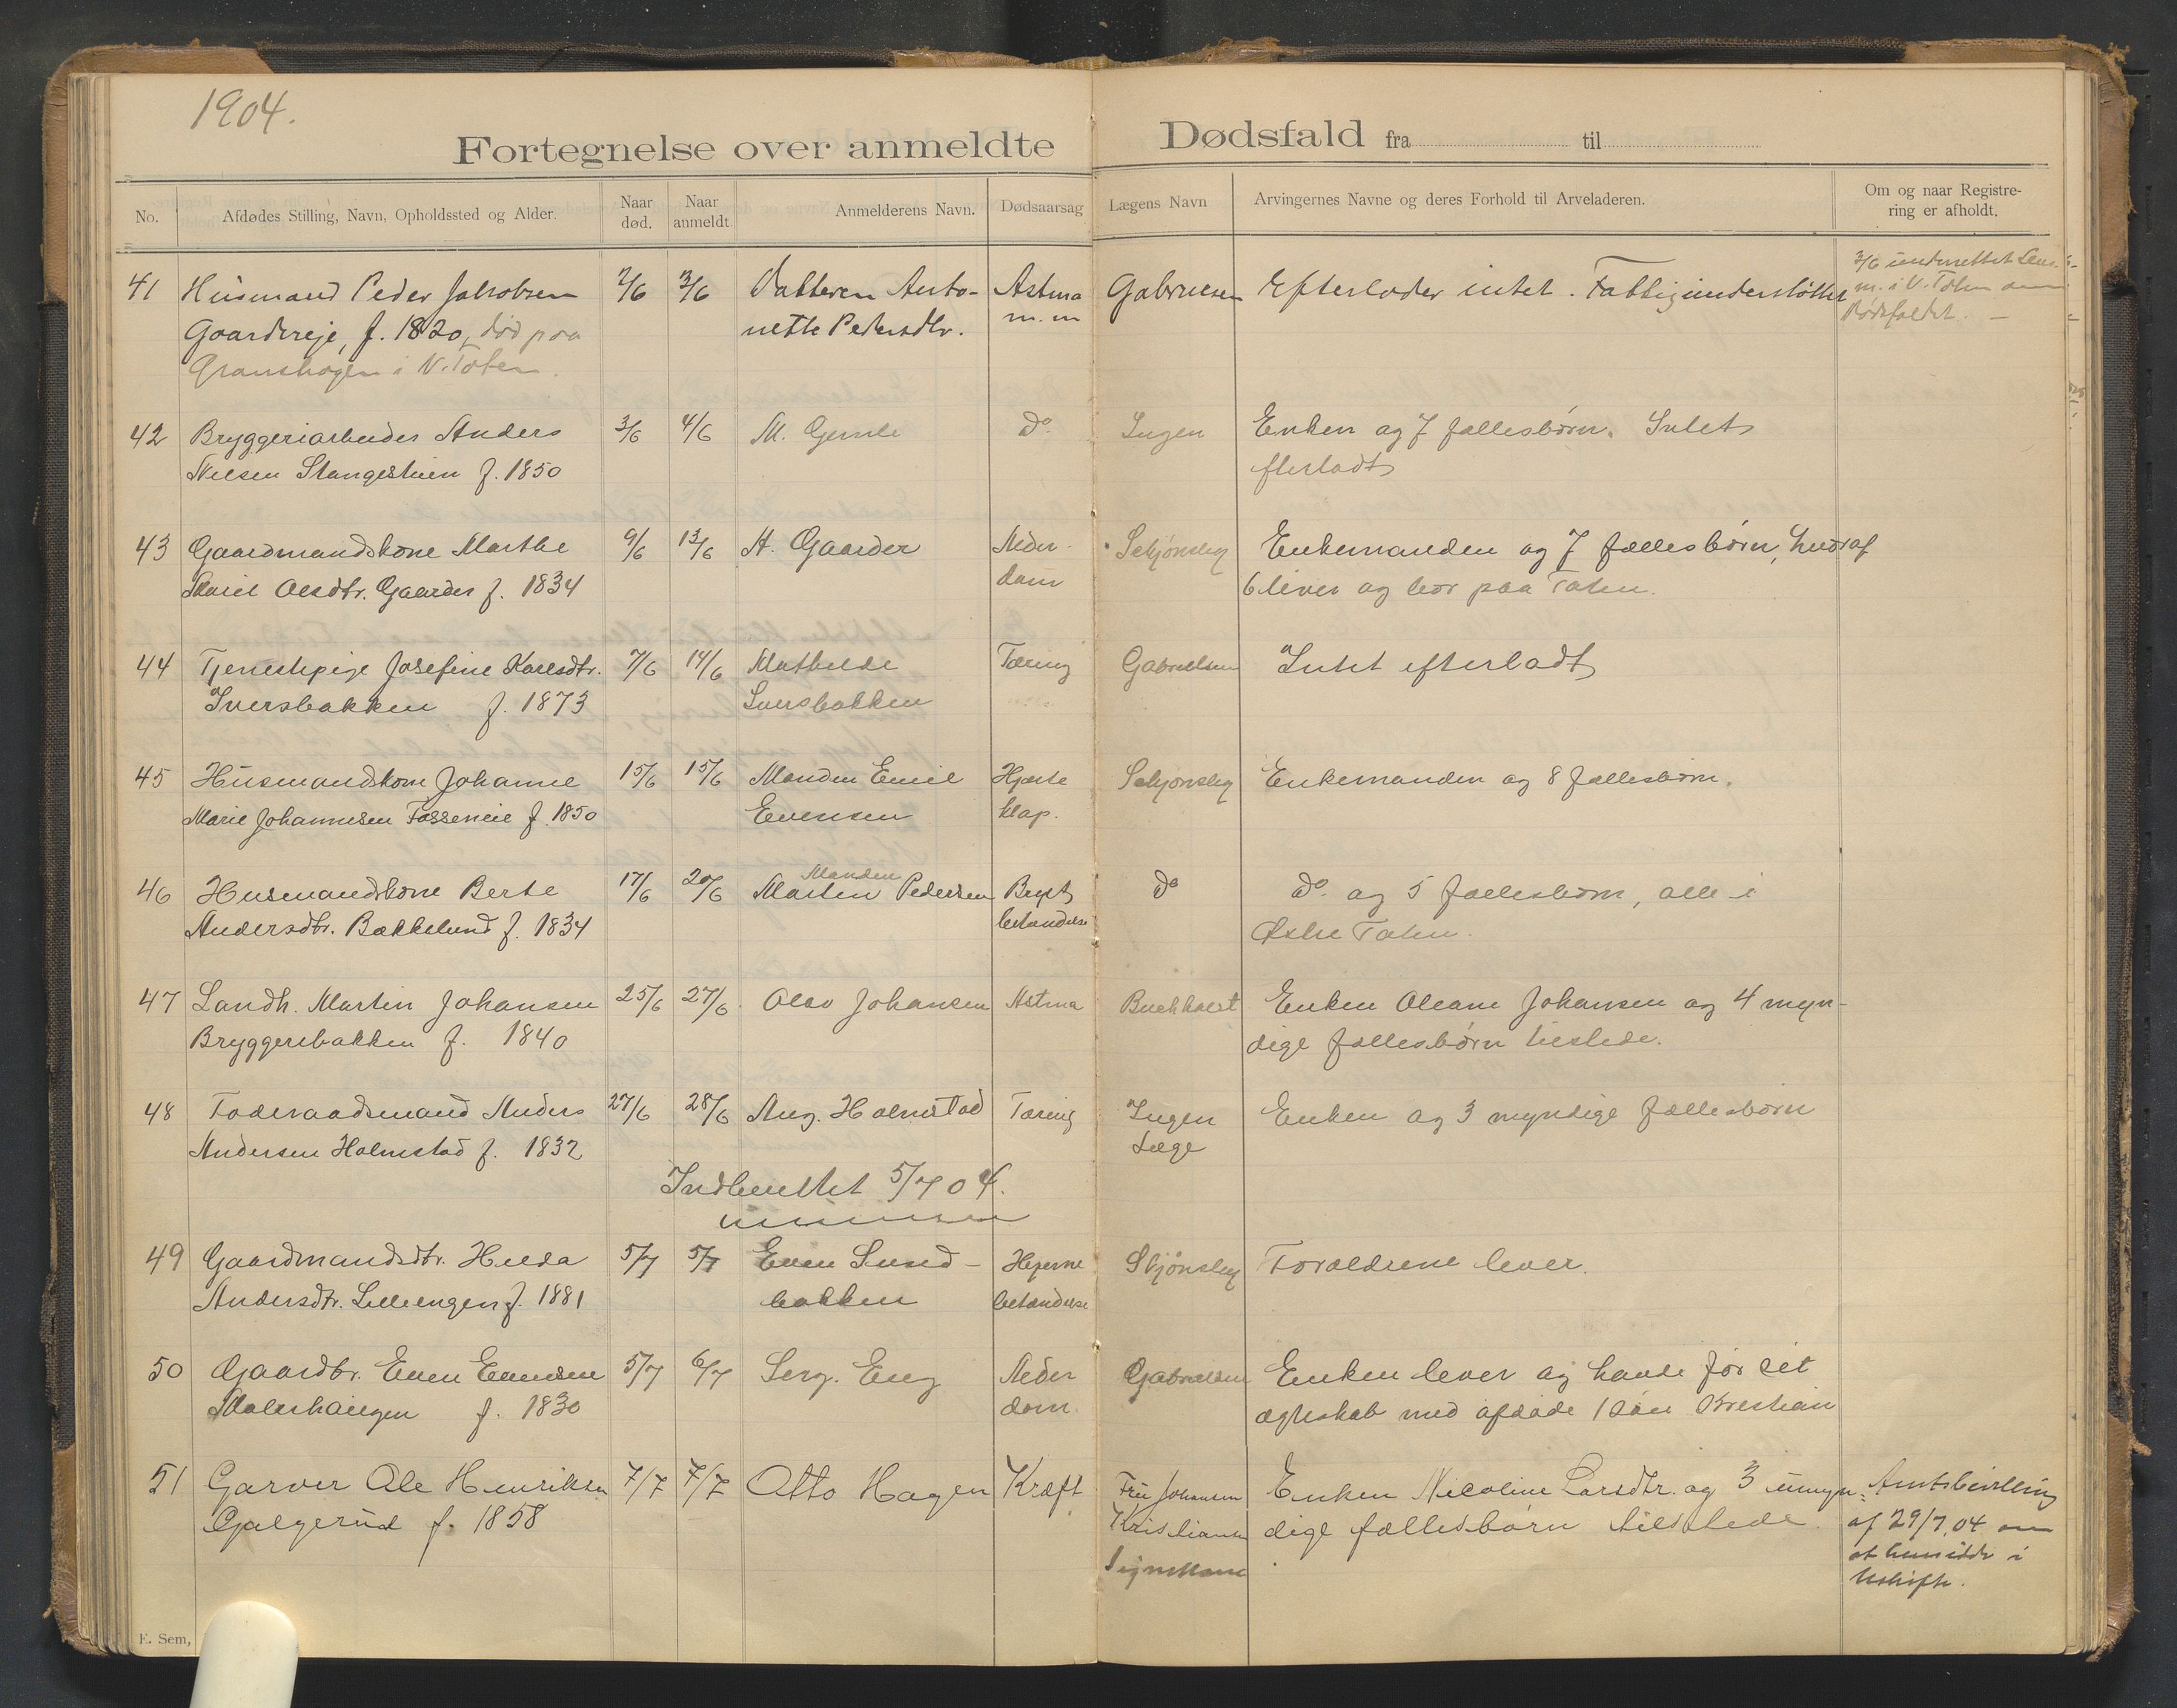 1904.
Fortegnelse over anmeldte Dødsfald fra til
No.
Afdødes Stilling, Navn, Opholdssted og Alder.
Naar død.
Naar anmeldt
Anmelderens Navn.
Dødsaarsag
Lægens Navn
Arvingernes Navne og deres Forhold til Arveladeren.
Om og naar Registrering er afholdt.
41 Husmand Peder Jakobsen 2/6 3/6 Datteren Anto- Astma Gabrielsen Efterlader intet. Fattigunderstøttet 3/6 underrettet Lens-
Gaardereje, f. 1820, død paa nette Pedersdtr. m.m m. i V. Toten om
Granshagen i V. Toten. Dødsfaldet. —
42 Bryggeriarbeider Anders 3/6 4/6 M. Gjemle Do Ingen Enken og 7 fællesbørn. Intet
Nilsen Stangestuen f. 1850 efterladt
43 Gaardmandskone Marthe 9/6 13/6 A. Gaarder Alder- Schjønsby Enkemanden og 7 fællesbørn, hvoraf
Marie Olsdtr. Gaarder f. 1834 dom 6 lever og bor paa Toten.
44 Tjenestepige Josefine Karlsdtr. 7/6 14/6 Mathilde Tæring Gabrielsen Intet efterladt
Iversbakken f. 1873 Iversbakken
45 Husmandskone Johanne 15/6 15/6 Manden Emil Hjerte Schjønsby Enkemanden og 8 fællesbørn.
Marie Johannesen Fosseneie f. 1850 Evensen klap.
46 Husmandskone Berte 17/6 20/6 Manden Martin Pedersen Bryst do do. og 5 fællesbørn, alle i
Andersdtr. Bækkelund f. 1834 betændelse Østre Toten.
47 Landh. Martin Johansen 25/6 27/6 Olav Johansen Astma Buchholdt Enken Oleane Johansen og 4 myn-
Bryggeribakken f. 1840 dige fællesbørn tilstede.
48 Føderaadsmand Anders 27/6 28/6 Aug. Holmstad Tæring Ingen Enken og 3 myndige fællesbørn
Andersen Holmstad f. 1832 Læge
Indberettet 5/7 04.
49 Gaardmandsdtr. Hilda 5/7 5/7 Even Sund- Hjerne Skjønsby Forældrene lever.
Andersdtr. Lilleengen f. 1881 bakken betændelse
50 Gaardbr. Even Evensen 5/7 6/7 Serg. Eng Alder Gabrielsen Enken lever og havde før sit
Malerhaugen f. 1830 dom. ægteskab med afdøde 1 søn Kristian
51 Garver Ole Henriksen 7/7 7/7 Otto Hagen Kræft Fru Johansen Enken Nicoline Larsdtr. og 3 umyn- Amtsbevilling
Galgerud f. 1858 Kristiania dige fællesbørn tilstede. af 29/7 04 om
Signekone at hensidde i
Uskifte.
E. Sem,